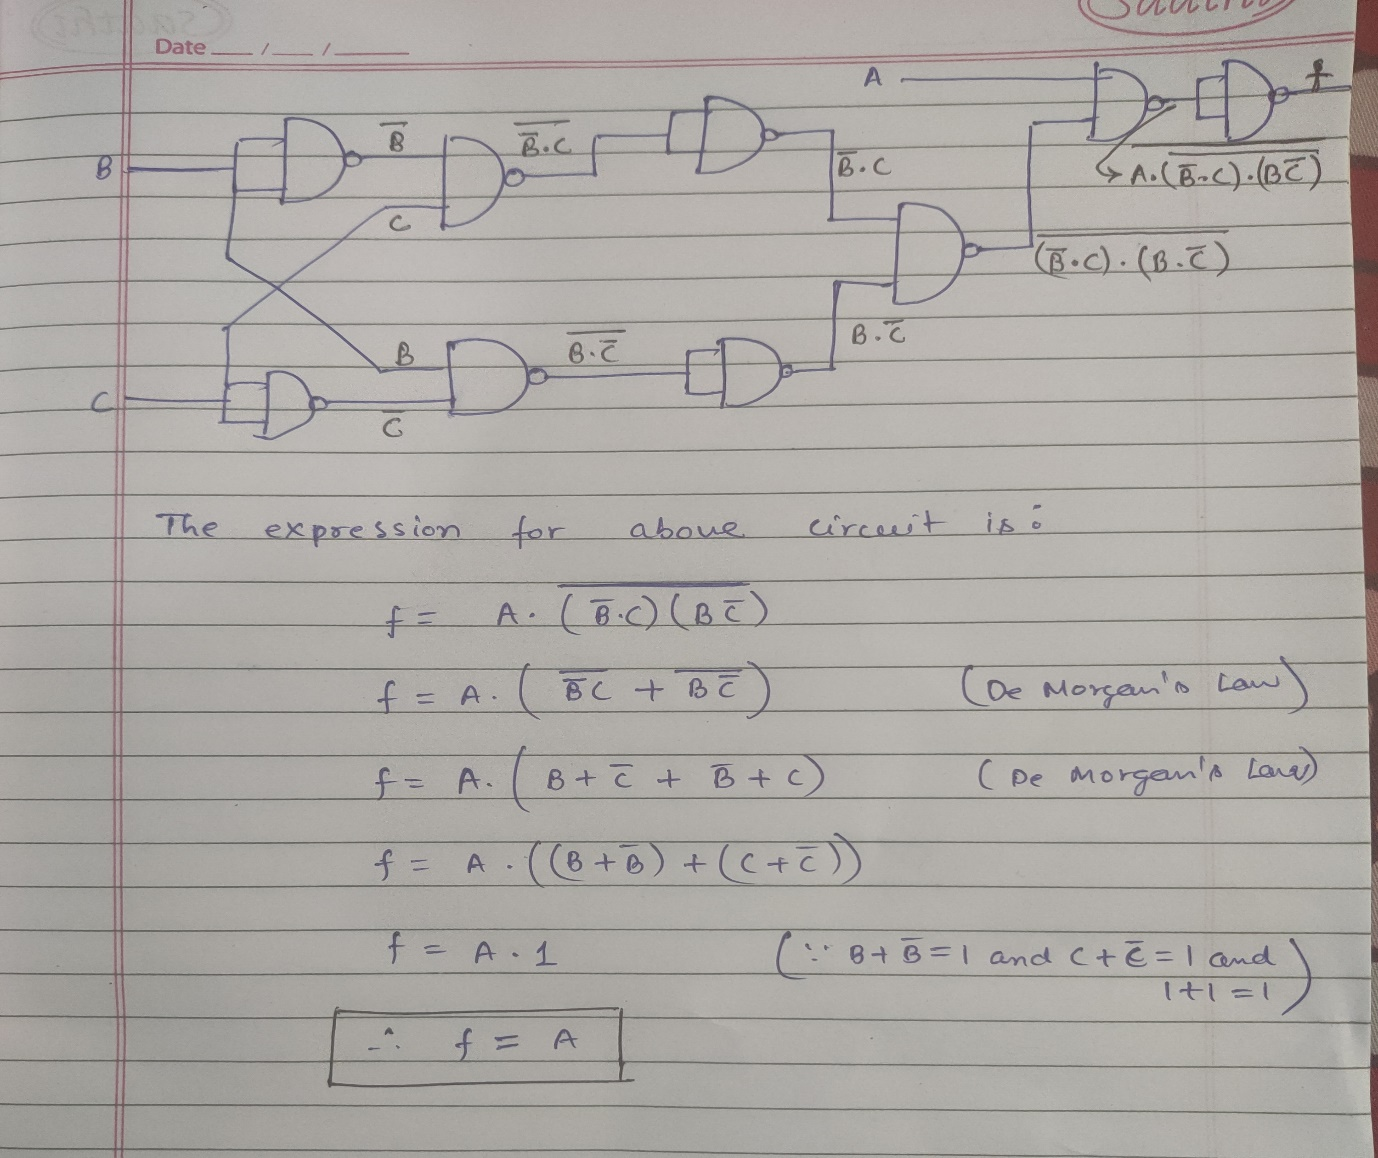 Saathi
Date __/__/____
A
f
B
B̅
\overline{B̅.C}
B̅.C
A.\overline{(B̅.C).(BC̅)}
C
\overline{(B̅.C).(B.C̅)}
B
\overline{B.C̅}
B.C̅
C
C̅
The expression for above circuit is :
f = A. \overline{(B̅.C)(BC̅)}
f = A. ( \overline{B̅C} + \overline{BC̅} ) (De Morgan's Law)
f = A. ( B + C̅ + B̅ + C ) (De Morgan's Law)
f = A . ((B + B̅) + (C + C̅))
f = A . 1 (∵ B + B̅ = 1 and C + C̅ = 1 and
1+1 = 1)
∴ f = A